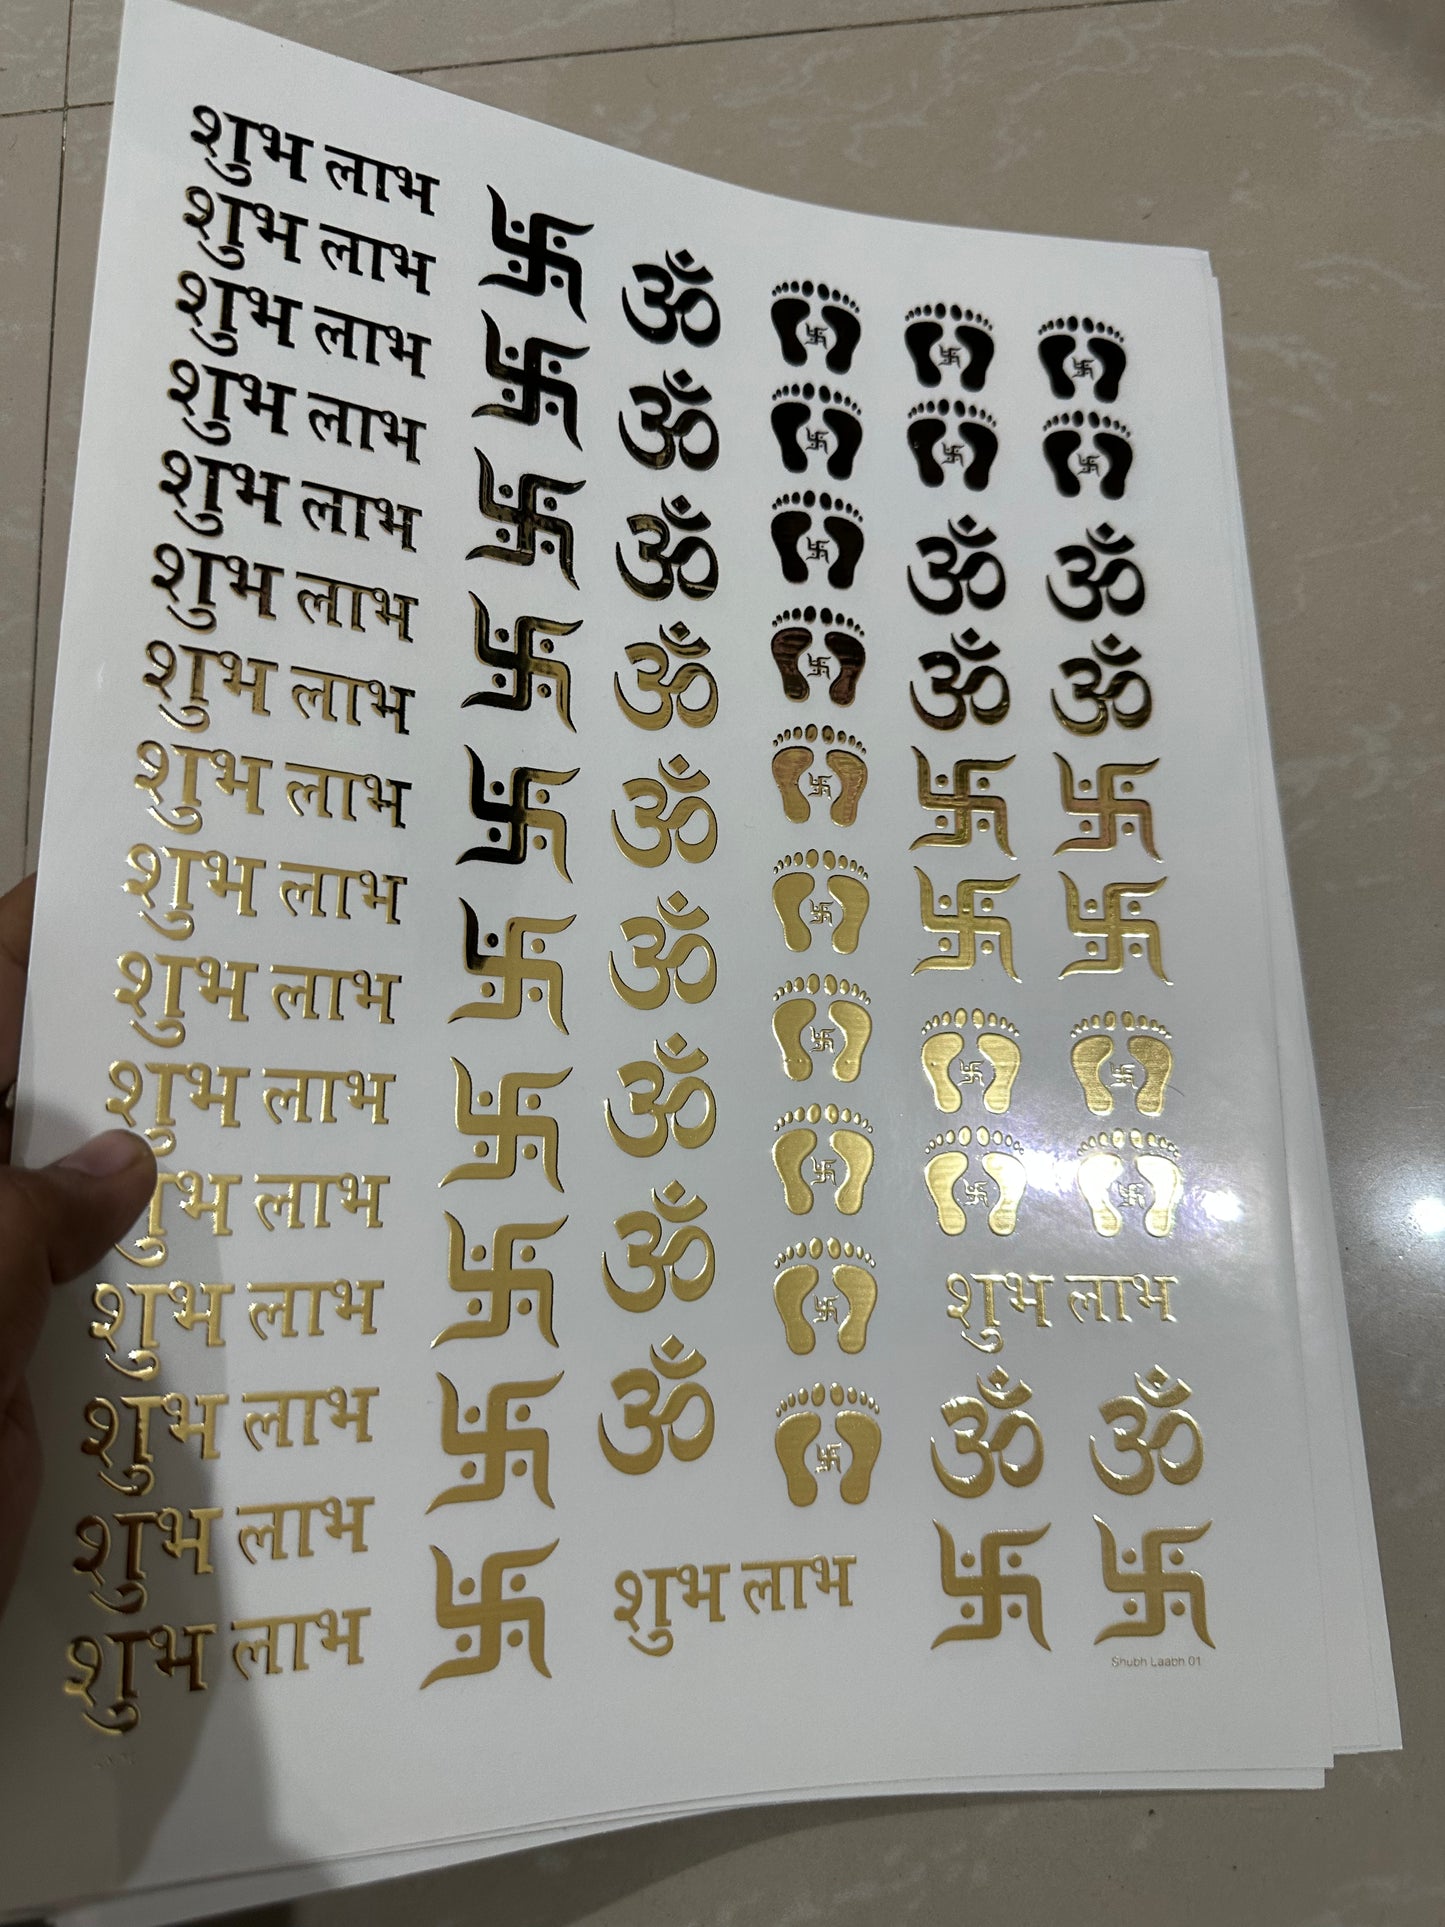 शुभ लाभ
शुभ लाभ
शुभ लाभ
शुभ लाभ
शुभ लाभ
शुभ लाभ
शुभ लाभ
शुभ लाभ
शुभ लाभ
शुभ लाभ
शुभ लाभ
शुभ लाभ
शुभ लाभ
शुभ लाभ
शुभ लाभ
शुभ लाभ
ॐ
ॐ
ॐ
ॐ
ॐ
ॐ
ॐ
ॐ
ॐ
शुभ लाभ
ॐ ॐ
ॐ ॐ
शुभ लाभ
ॐ ॐ
Shubh Laabh 01